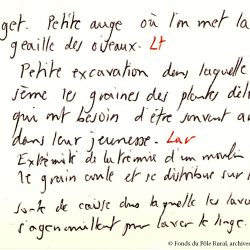 get. Petite auge où l'on met la
geaille des oiseaux. Lt
Petite excavation dans laquelle
sème les graines des plantes déli
qui ont besoin d'être souvent a
dans leur jeunesse. Lar
Extrémité de la trémie d'un moulin
le grain coule et se distribue sur l
sorte de caisse dans laquelle les lave
s'agenouillent pour laver le linge.
© Fonds du Pôle Rural, archives